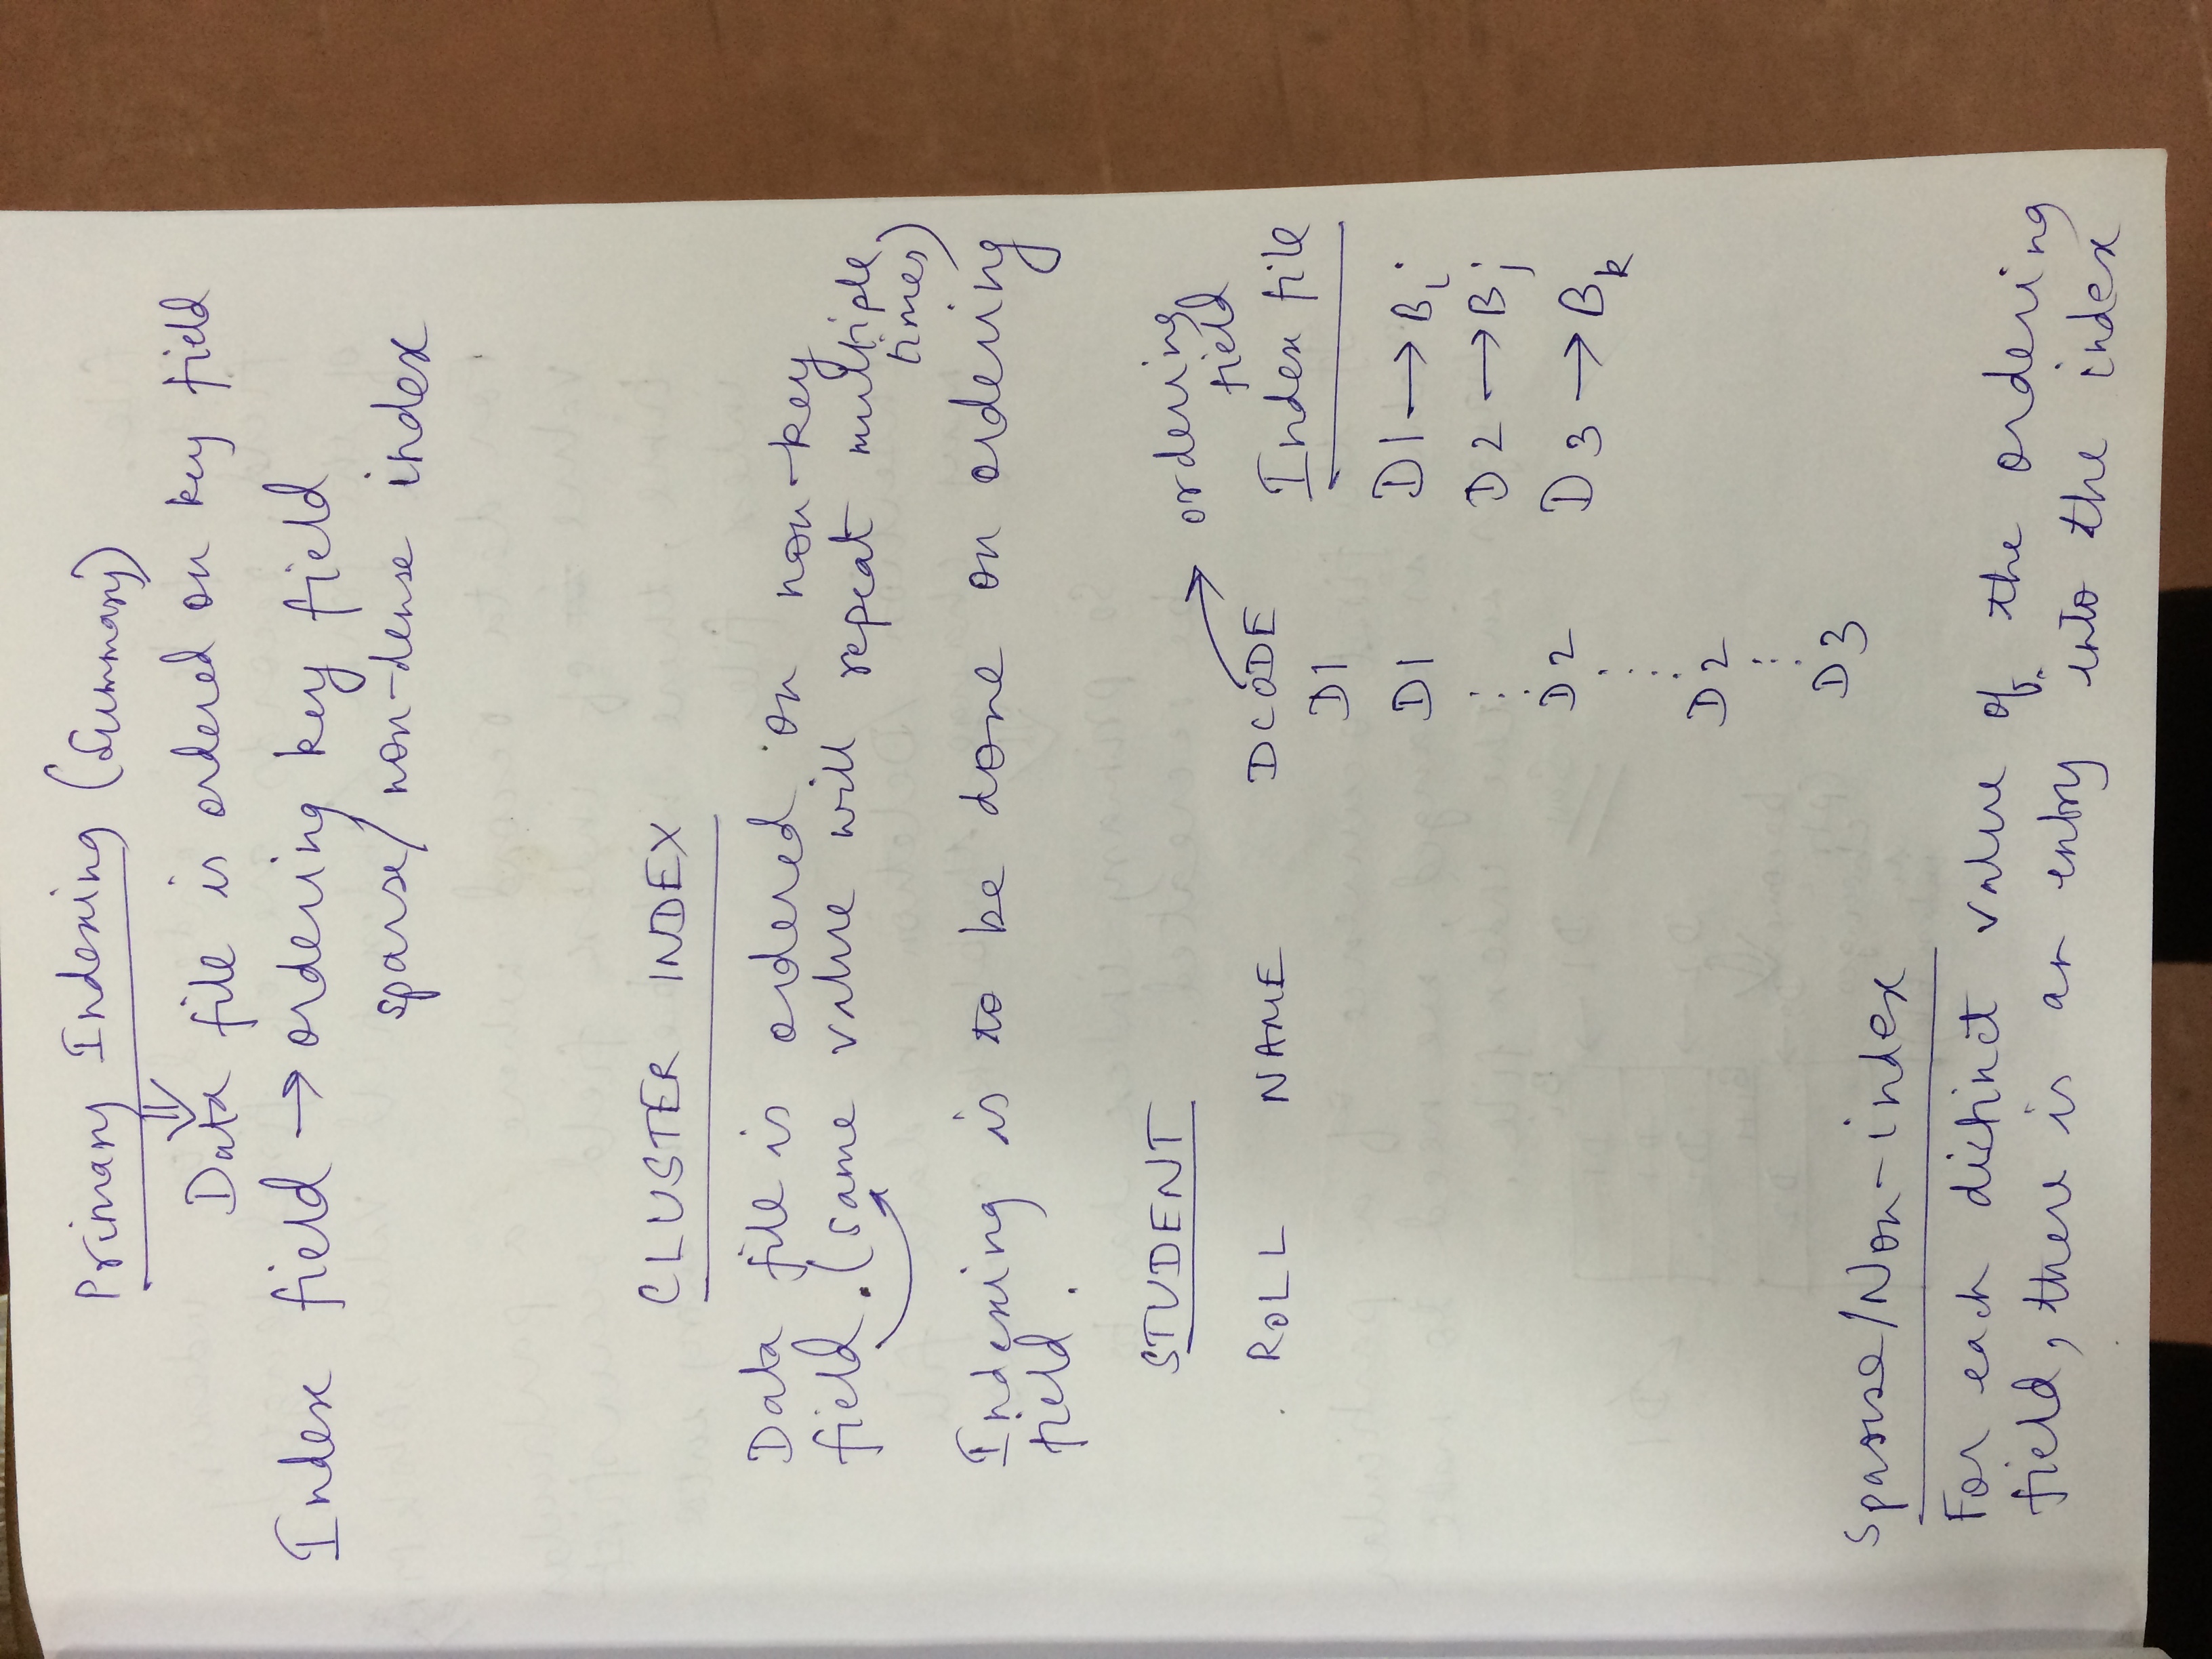 Primary Indexing (Summary)
Data file is ordered on key field
Index field → ordering key field
sparse/ non-dense index
CLUSTER INDEX
Data file is ordered on non-key
field. (same value will repeat multiple
times)
Indexing is to be done on ordering
field.
STUDENT
ordering
field
ROLL NAME DCODE
Index file
D1
D1 D1 → Bi
D2 → Bj
D2 D3 → Bk
D2
D3
Sparse/Non-index
For each distinct value of the ordering
field, there is an entry into the index